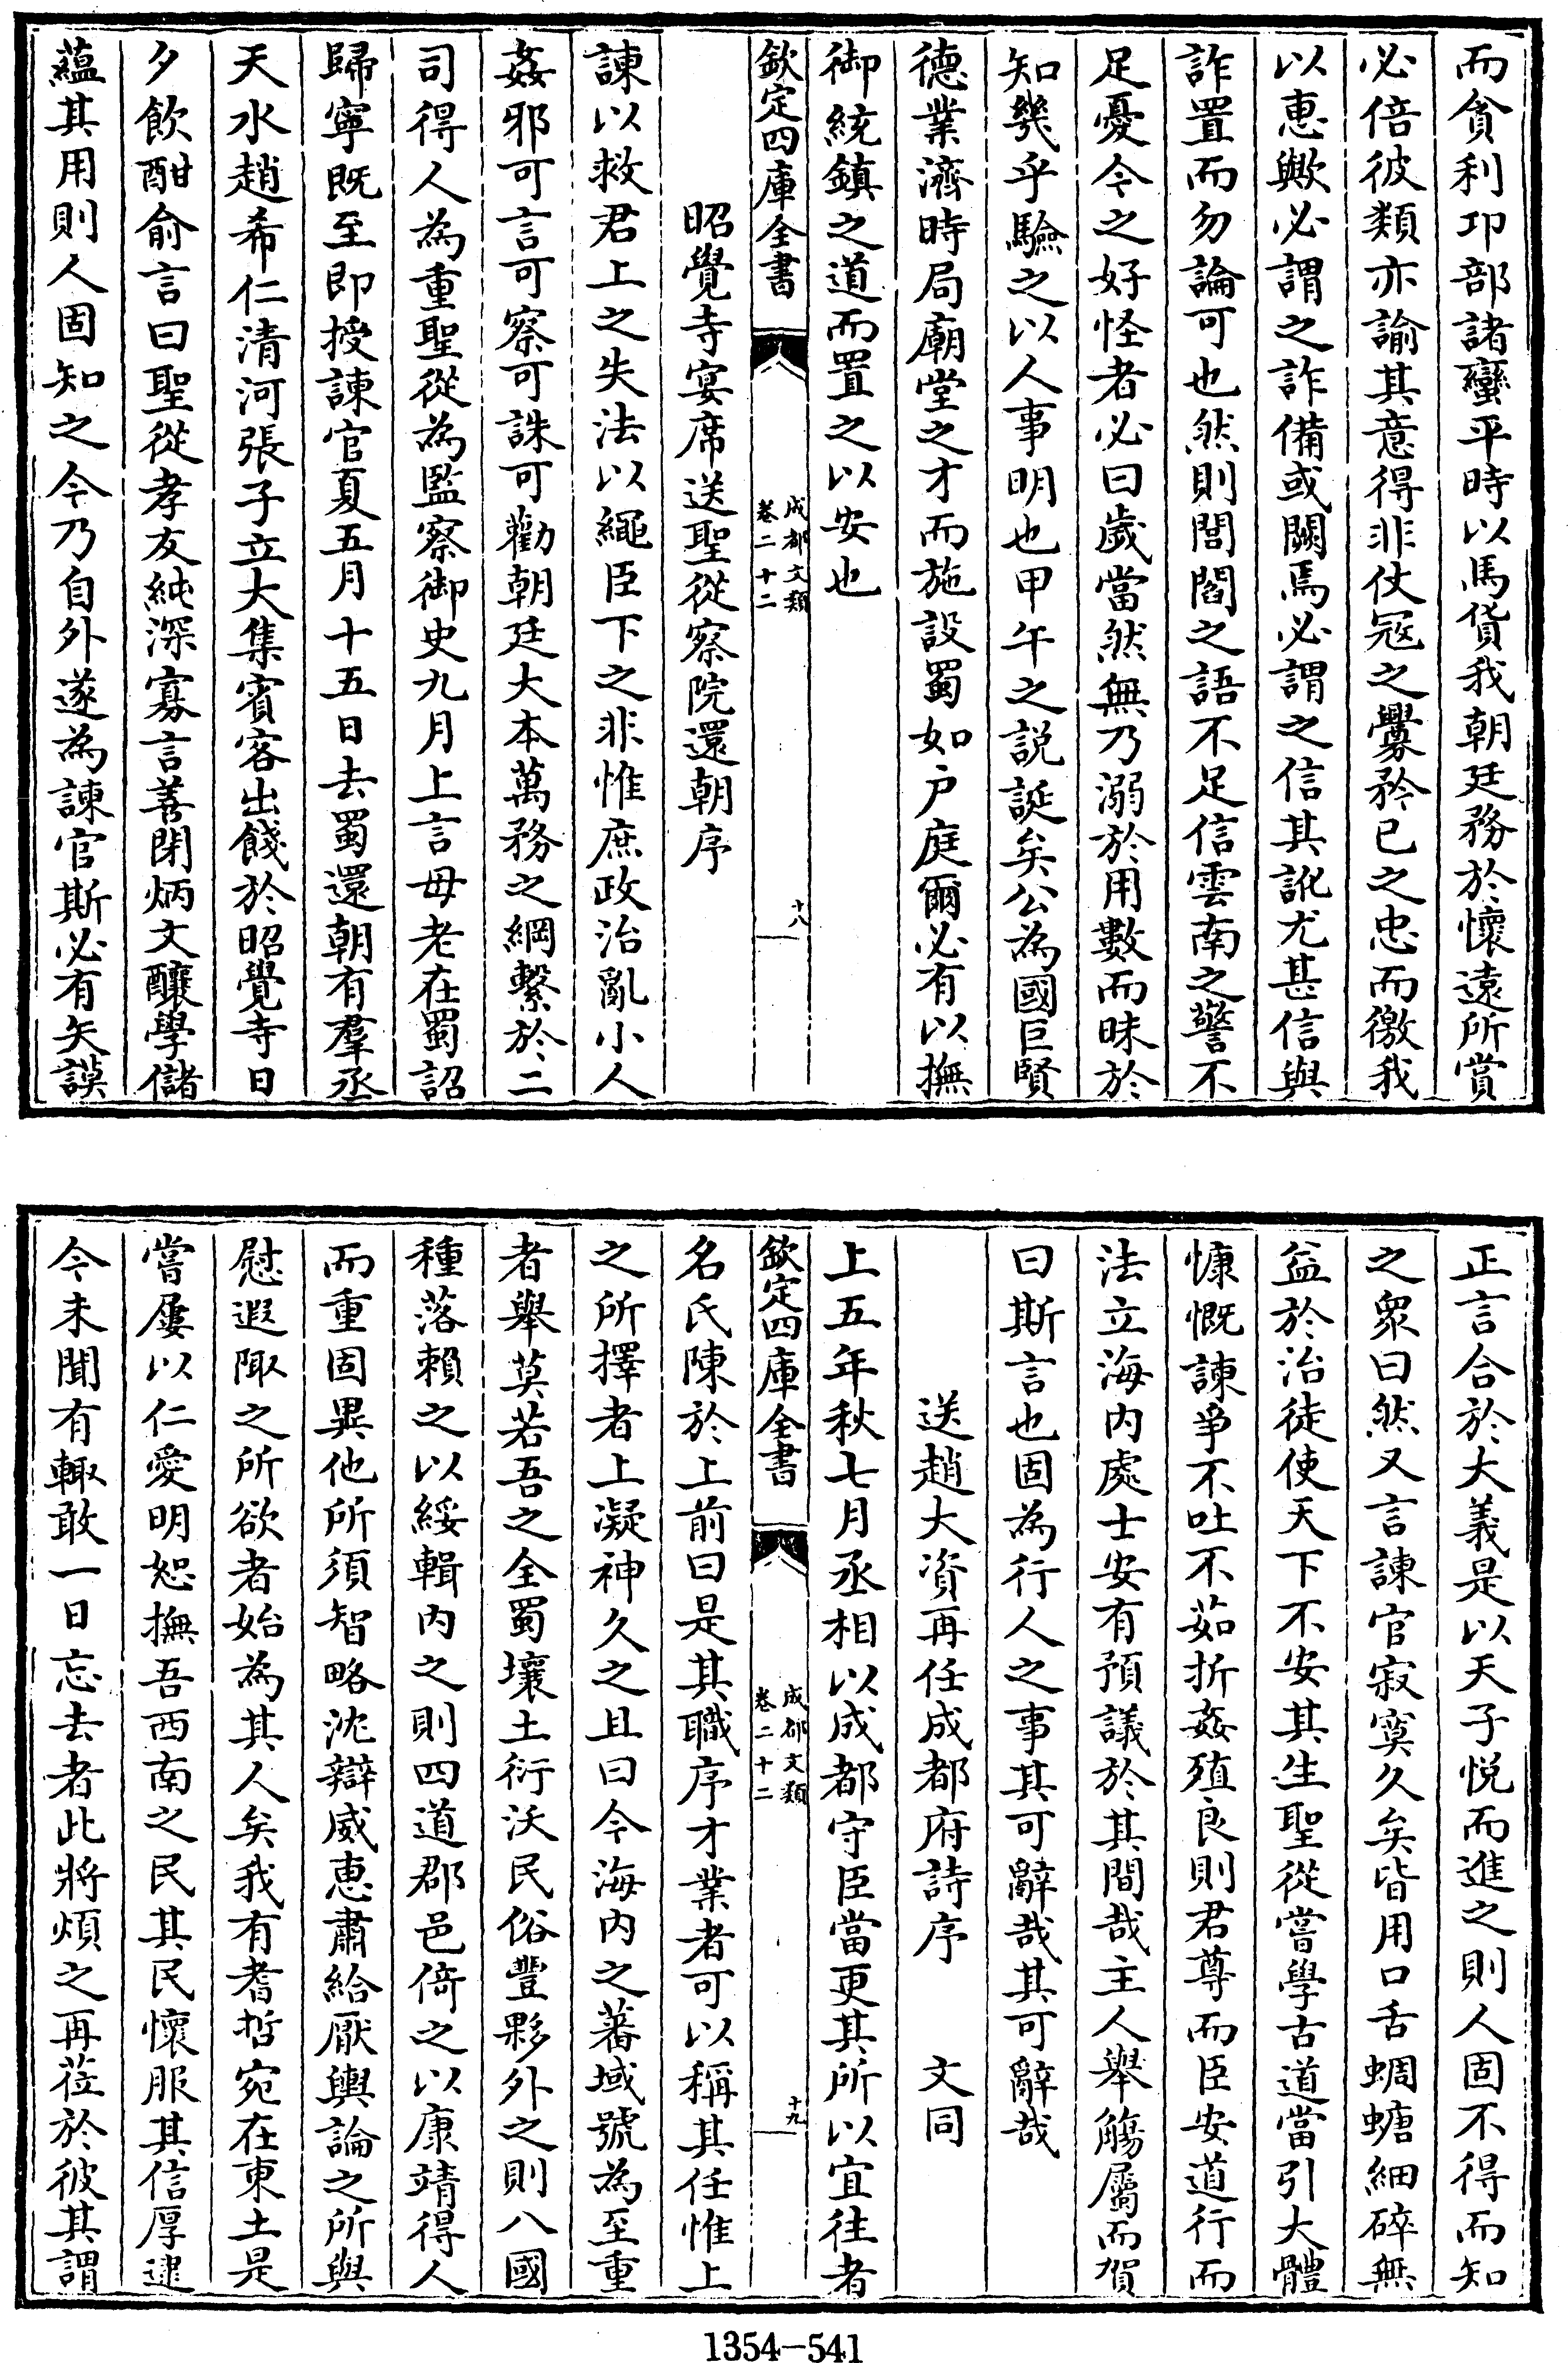 而貪利卭部諸蠻平時以馬貨我朝廷務於懷遠所賞
必倍彼類亦諭其意得非仗冦之釁矜已之忠而徼我
以惠歟必謂之詐備或闕焉必謂之信其訛尤甚信與
詐置而勿論可也然則閭閻之語不足信雲南之警不
足憂今之好怪者必曰歲當然無乃溺於用數而昧於
知幾乎驗之以人事明也甲午之説誕矣公為國巨賢
德業濟時局廟堂之才而施設蜀如户庭爾必有以撫
御統鎮之道而置之以安也
欽定四庫全書
成都文類
卷二十二
十八
昭覺寺宴席送聖從察院還朝序
諫以救君上之失法以繩臣下之非惟庶政治亂小人
姦邪可言可察可誅可勸朝廷大本萬務之綱繫於二
司得人為重聖從為監察御史九月上言母老在蜀詔
歸寧既至即授諫官夏五月十五日去蜀還朝有羣丞
天水趙希仁清河張子立大集賓客出餞於昭覺寺日
夕飲酣俞言曰聖從孝友純深寡言善閉炳文釀學儲
蘊其用則人固知之今乃自外遂為諫官斯必有矢謨
正言合於大義是以天子悦而進之則人固不得而知
之衆曰然又言諫官寂寞久矣皆用口舌蜩螗細碎無
益於治徒使天下不安其生聖從嘗學古道當引大體
慷慨諫爭不吐不茹折姦殖良則君尊而臣安道行而
法立海内處士安有預議於其間哉主人舉觴屬而賀
曰斯言也固為行人之事其可辭哉其可辭哉
送趙大資再任成都府詩序 文同
上五年秋七月丞相以成都守臣當更其所以宜往者
欽定四庫全書
成都文類
卷二十二
十九
名氏陳於上前曰是其職序才業者可以稱其任惟上
之所擇者上凝神久之且曰今海内之蕃域號為至重
者舉莫若吾之全蜀壤土衍沃民俗豐夥外之則八國
種落賴之以綏輯内之則四道郡邑倚之以康靖得人
而重固異他所須智略沈辯威惠肅給厭輿論之所與
慰遐陬之所欲者始為其人矣我有耆哲宛在東土是
嘗屢以仁愛明恕撫吾西南之民其民懷服其信厚逮
今未聞有輙敢一日忘去者此將煩之再莅於彼其謂
1354-541